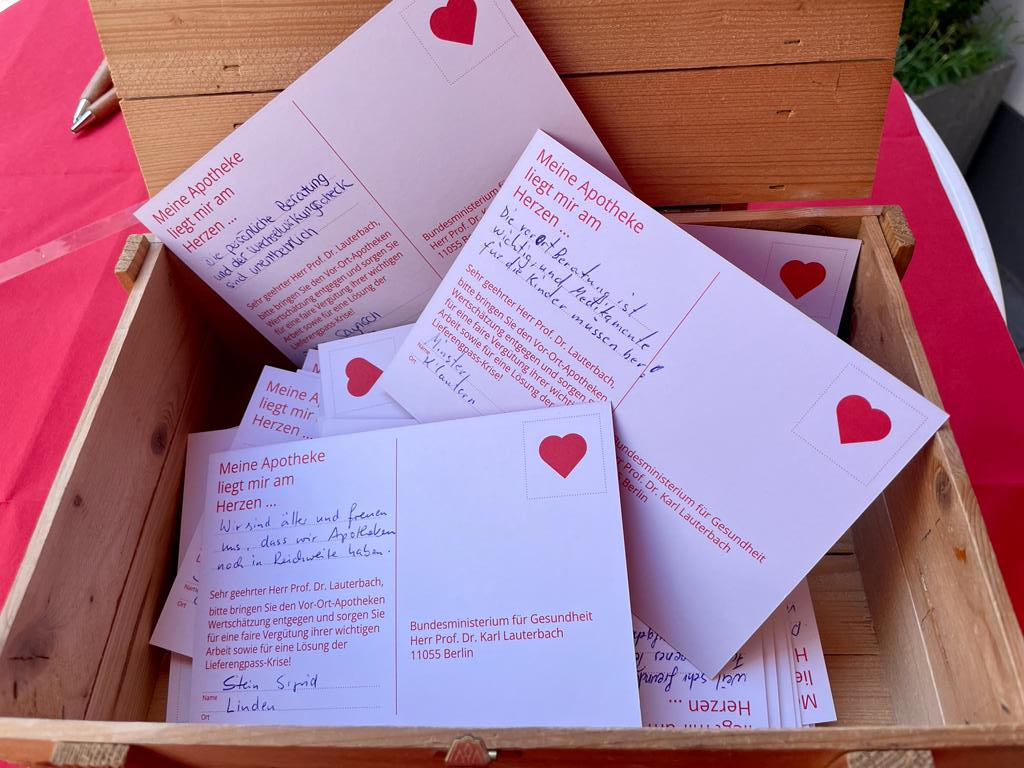 Meine Apotheke
liegt mir am
Herzen ...
Die persönliche Beratung
und der Wechselwirkungscheck
sind unentbehrlich
Sehr geehrter Herr Prof. Dr. Lauterbach,
bitte bringen Sie den Vor-Ort-Apotheken
Wertschätzung entgegen und sorgen Sie
für eine faire Vergütung ihrer wichtigen
Arbeit sowie für eine Lösung der
Lieferengpass-Krise!
Bundesministerium für
Herr Prof. Dr.
11055 Be
Meine Apotheke
liegt mir am
Herzen ...
Die vorort Beratung ist
wichtig und Medikamente
für die Kinder müssen her!
Sehr geehrter Herr Prof. Dr. Lauterbach,
bitte bringen Sie den Vor-Ort-Apotheken
Wertschätzung entgegen und sorgen S
für eine faire Vergütung ihrer wichtigen
Arbeit sowie für eine Lösung der
Lieferengpass-Krise!
Name
Ort K'lautern
Bundesministerium für Gesundheit
Prof. Dr. Karl Lauterbach
Berlin
Meine Ap
liegt mir
Herzen ...
Meine Apotheke
liegt mir am
Herzen ...
Wir sind älter und freuen
uns, dass wir Apotheken
noch in Reichweite haben.
Sehr geehrter Herr Prof. Dr. Lauterbach,
bitte bringen Sie den Vor-Ort-Apotheken
Wertschätzung entgegen und sorgen Sie
für eine faire Vergütung ihrer wichtigen
Arbeit sowie für eine Lösung der
Lieferengpass-Krise!
Name Stein Sigrid
Ort Linden
Bundesministerium für Gesundheit
Herr Prof. Dr. Karl Lauterbach
11055 Berlin
Name
Ort
liegt mir am
Herzen ...
weil sehr freund
M
lie
H